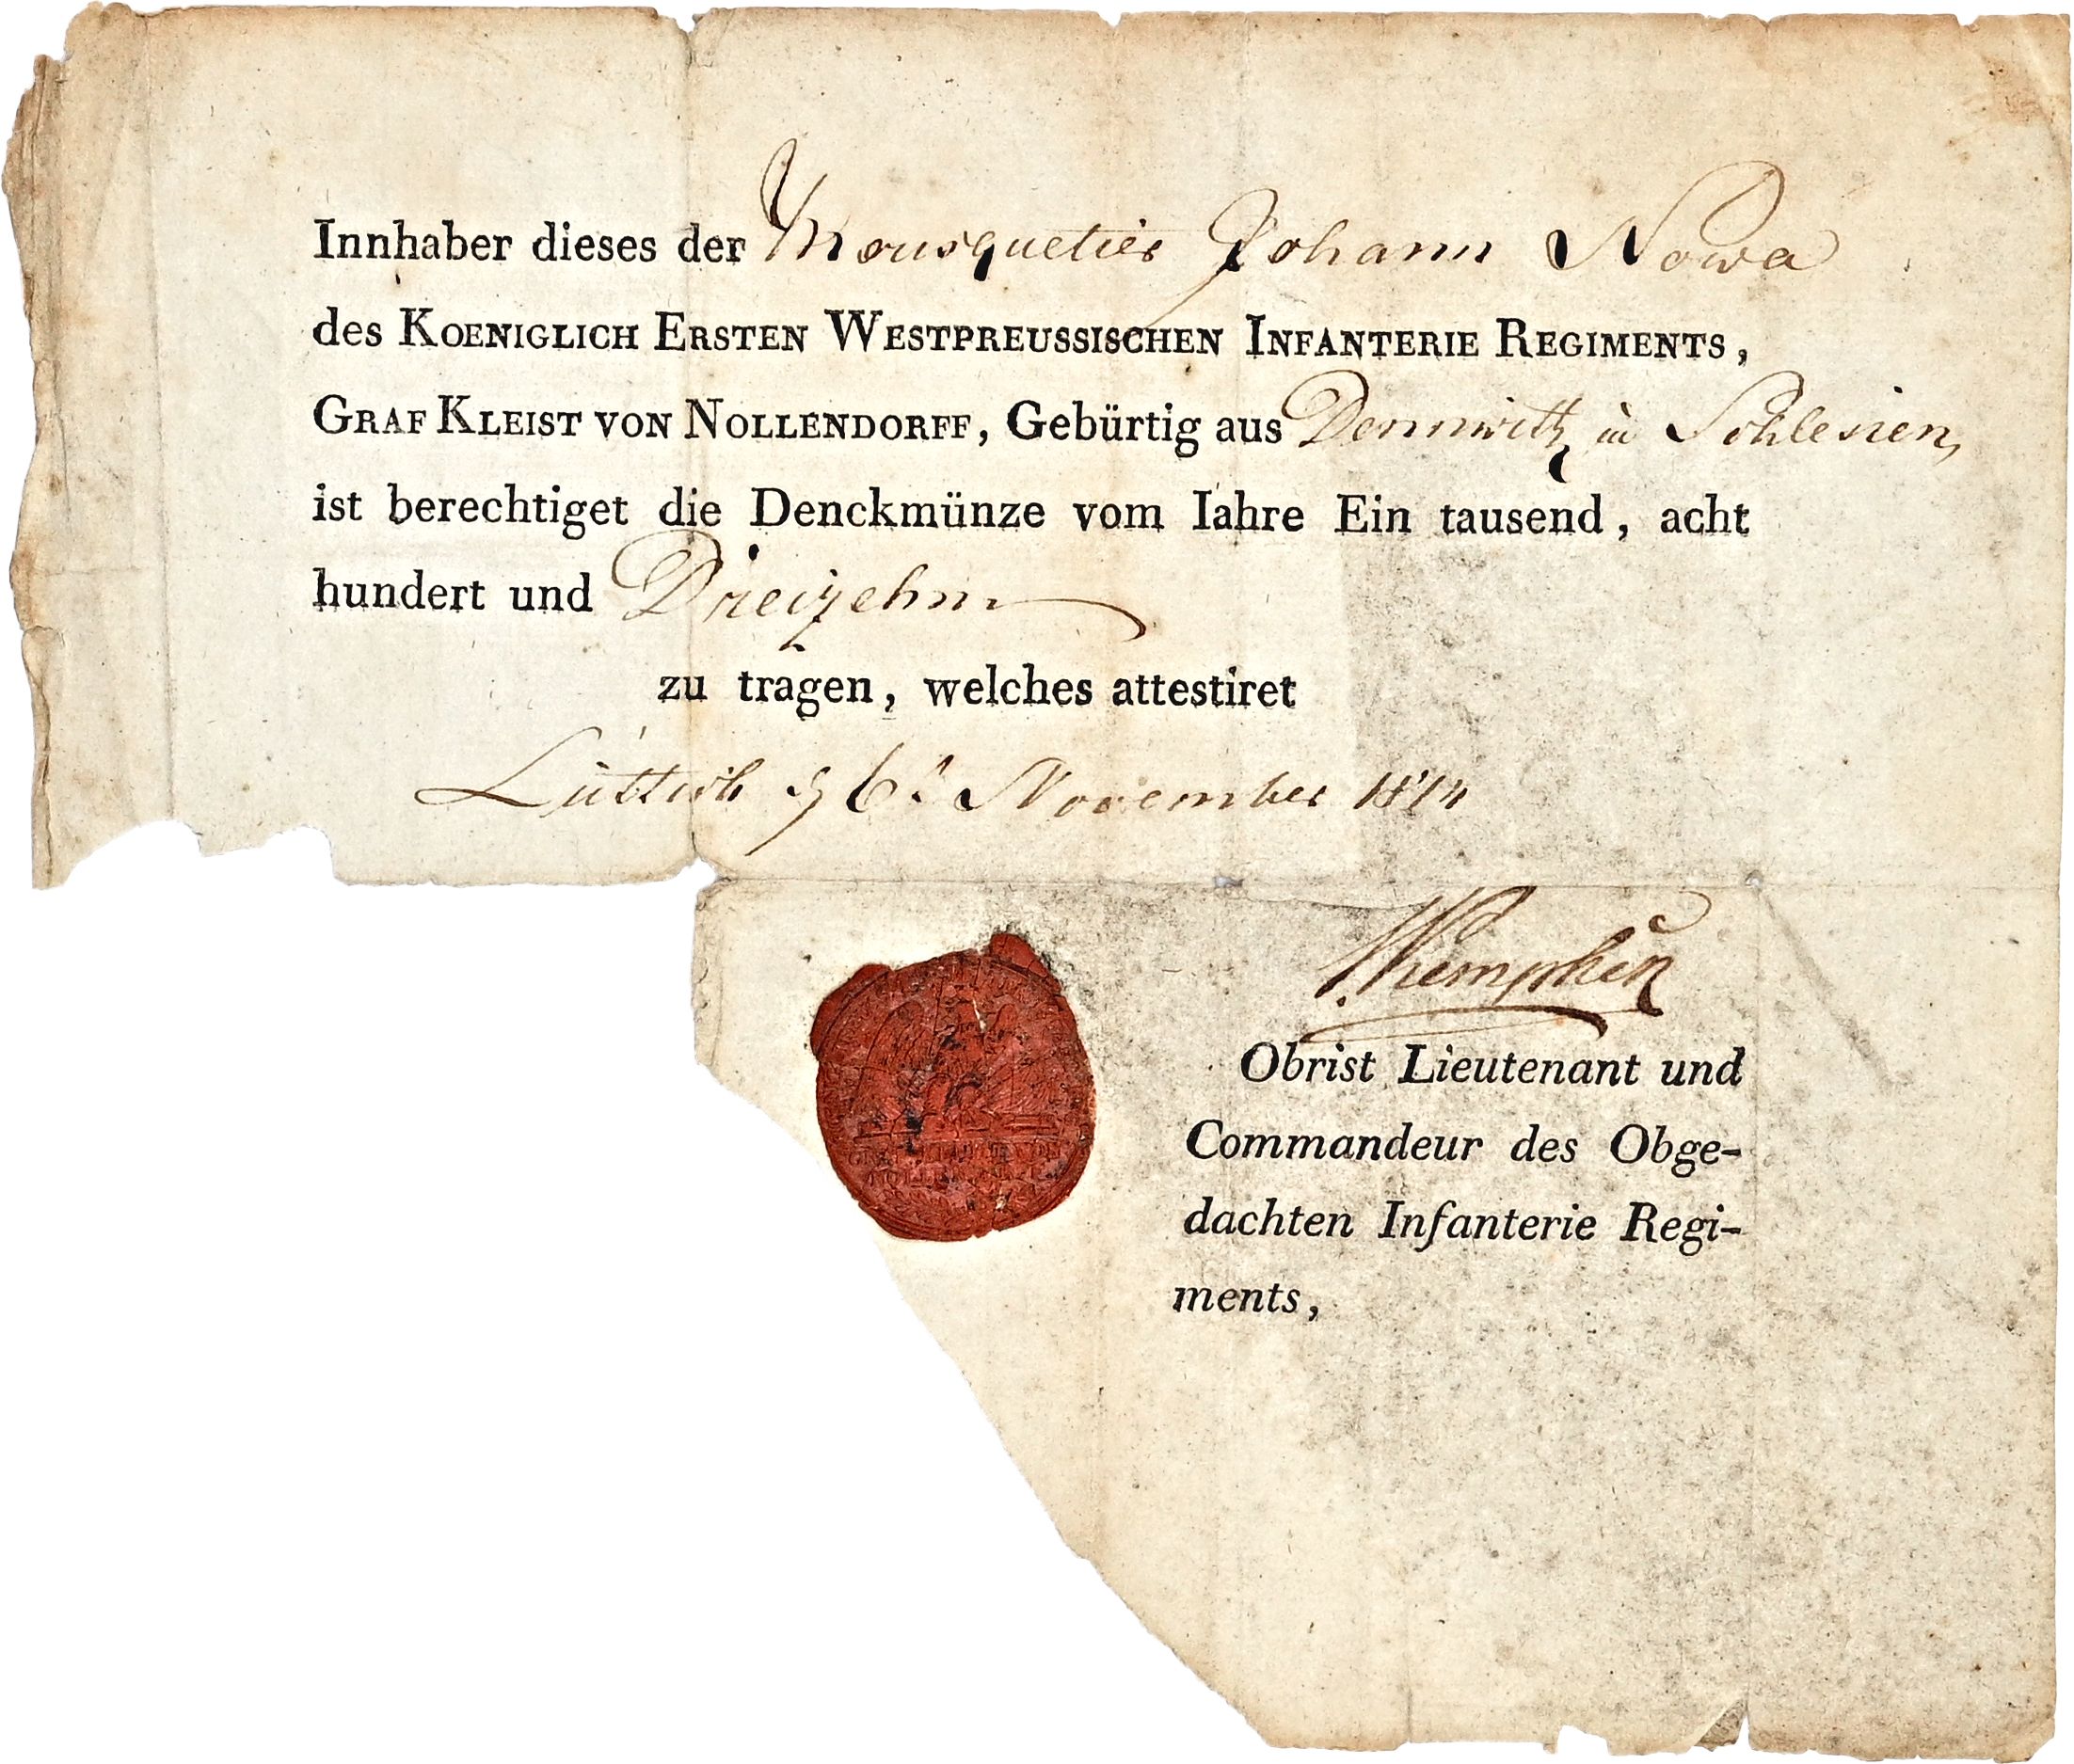 Innhaber dieses der Mousquetier Johann Nowa
des KOENIGLICH ERSTEN WESTPREUSSISCHEN INFANTERIE REGIMENTS,
GRAF KLEIST VON NOLLENDORFF, Gebürtig aus Dennwitz in Schlesien,
ist berechtiget die Denckmünze vom Iahre Ein tausend, acht
hundert und Dreizehn
zu tragen, welches attestiret
Lüttich 6t November 1814
Obrist Lieutenant und
Commandeur des Obge-
dachten Infanterie Regi-
ments,